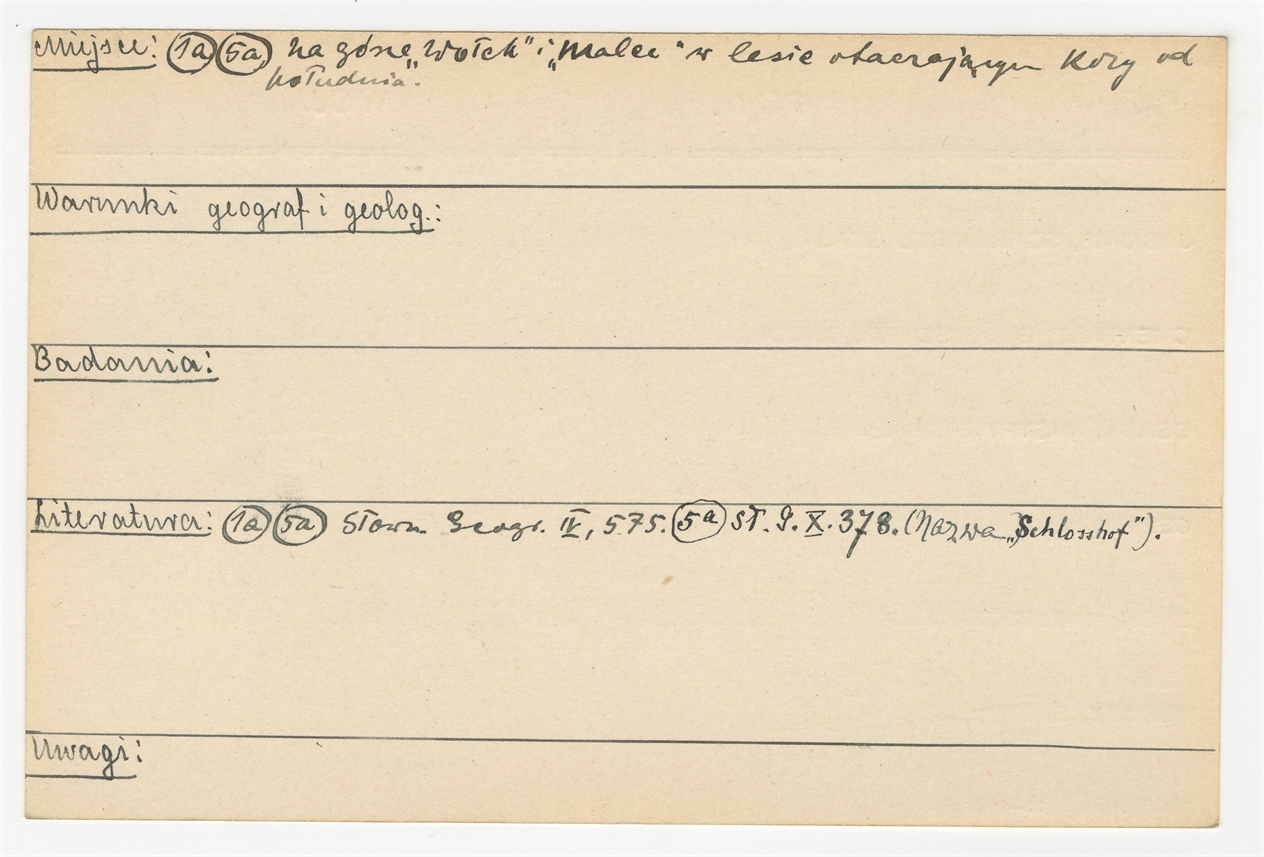 Miejsce: 1a 5a na górze „Wołek" i „Malec" w lesie otaczającym Kozy od
południa.
Warunki geograf i geolog.:
Badania:
Literatura: 1a 5a Słown. Geogr. IV, 575. 5a Sł. G. X. 378. (Nazwa „Schlosshof").
Uwagi: